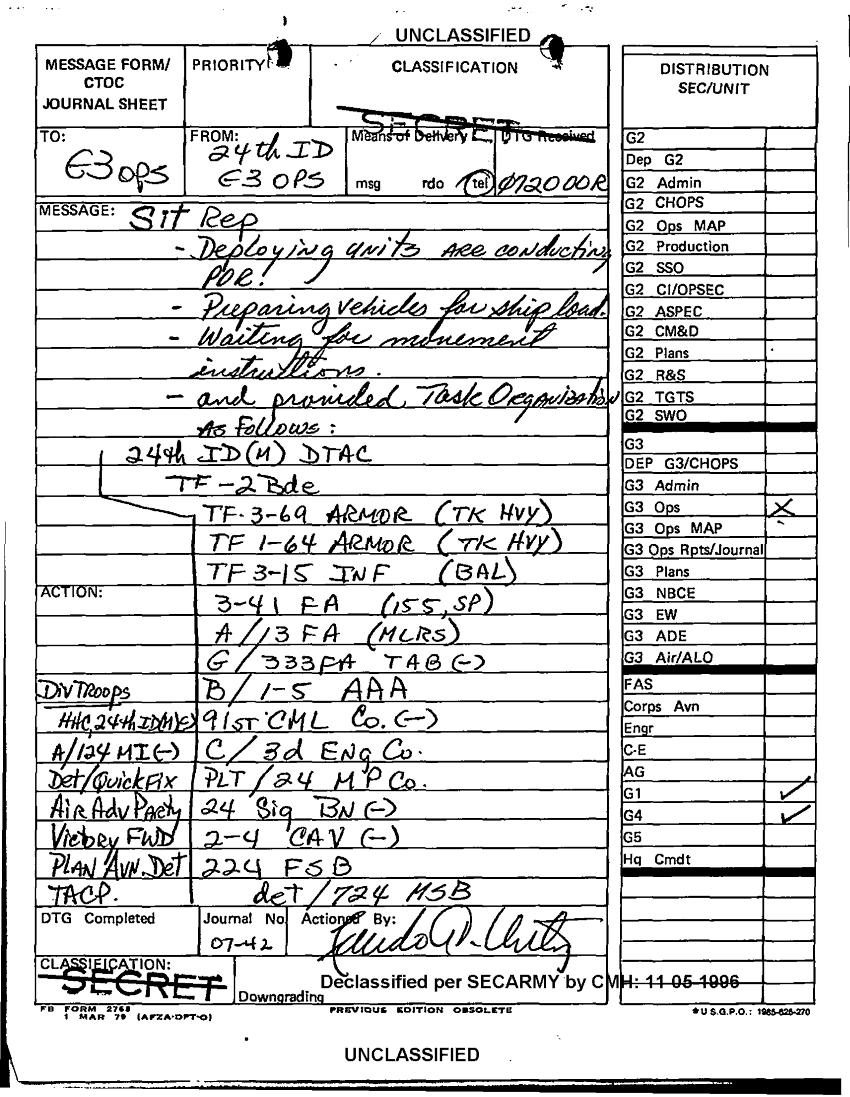 UNCLASSIFIED
MESSAGE FORM/
CTOC
JOURNAL SHEET
PRIORITY
CLASSIFICATION
SECRET
TO:
G3 OPS
FROM:
24th ID
G3 OPS
Means of Delivery
msg rdo tel
DTG Received
072000R
MESSAGE: Sit Rep
- Deploying units are conducting
POR!
- Preparing vehicles for ship load.
- Waiting for movement
instructions.
- and provided, Task Organization
As follows:
24th ID(M) DTAC
TF-2Bde
TF-3-69 ARMOR (TK HVY)
TF 1-64 ARMOR (TK HVY)
TF 3-15 INF (BAL)
ACTION:
3-41 FA (155, SP)
A/13 FA (MLRS)
G/333FA TAB (-)
DIV TROOPS
B/1-5 AAA
HHC, 24th ID(M)(-)
91ST CML Co. (-)
A/124 MI (-)
C/3d Eng Co.
Det/QuickFix
PLT/24 MP Co.
Air Adv Party
24 Sig BN (-)
Victory FWD
2-4 CAV (-)
PLAN AVN. Det
224 FSB
TACP.
det/724 MSB
DTG Completed
Journal No
07-42
Actioned By:
CLASSIFICATION:
SECRET
Downgrading
Declassified per SECARMY by CMH: 11 05 1996
FB FORM 2768
1 MAR 79 (AFZA-DPT-O)
PREVIOUS EDITION OBSOLETE
DISTRIBUTION
SEC/UNIT
G2
Dep G2
G2 Admin
G2 CHOPS
G2 Ops MAP
G2 Production
G2 SSO
G2 CI/OPSEC
G2 ASPEC
G2 CM&D
G2 Plans
G2 R&S
G2 TGTS
G2 SWO
G3
DEP G3/CHOPS
G3 Admin
G3 Ops X
G3 Ops MAP
G3 Ops Rpts/Journal
G3 Plans
G3 NBCE
G3 EW
G3 ADE
G3 Air/ALO
FAS
Corps Avn
Engr
C-E
AG
G1 ✓
G4 ✓
G5
Hq Cmdt
*U.S.G.P.O.: 1985-626-270
UNCLASSIFIED